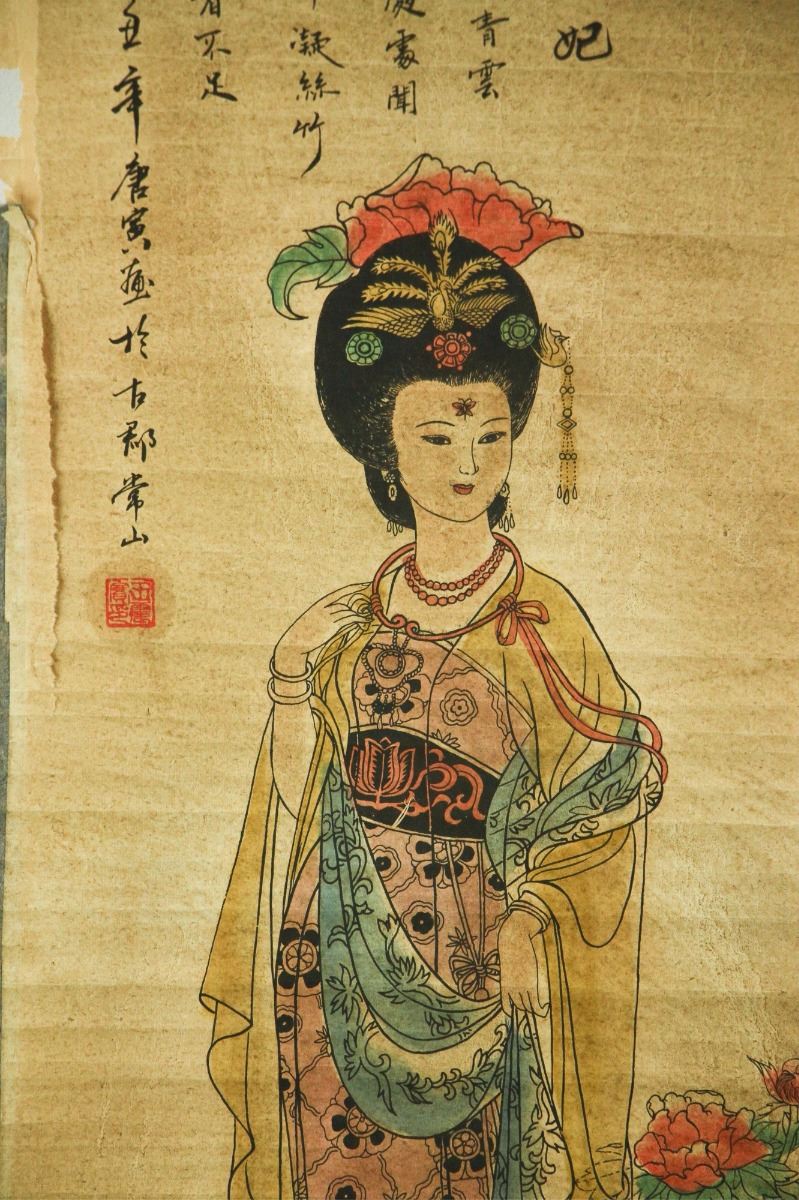 妃
青雲
處處聞
凝絲竹
看不足
丑辛唐寅畫於古郡常山